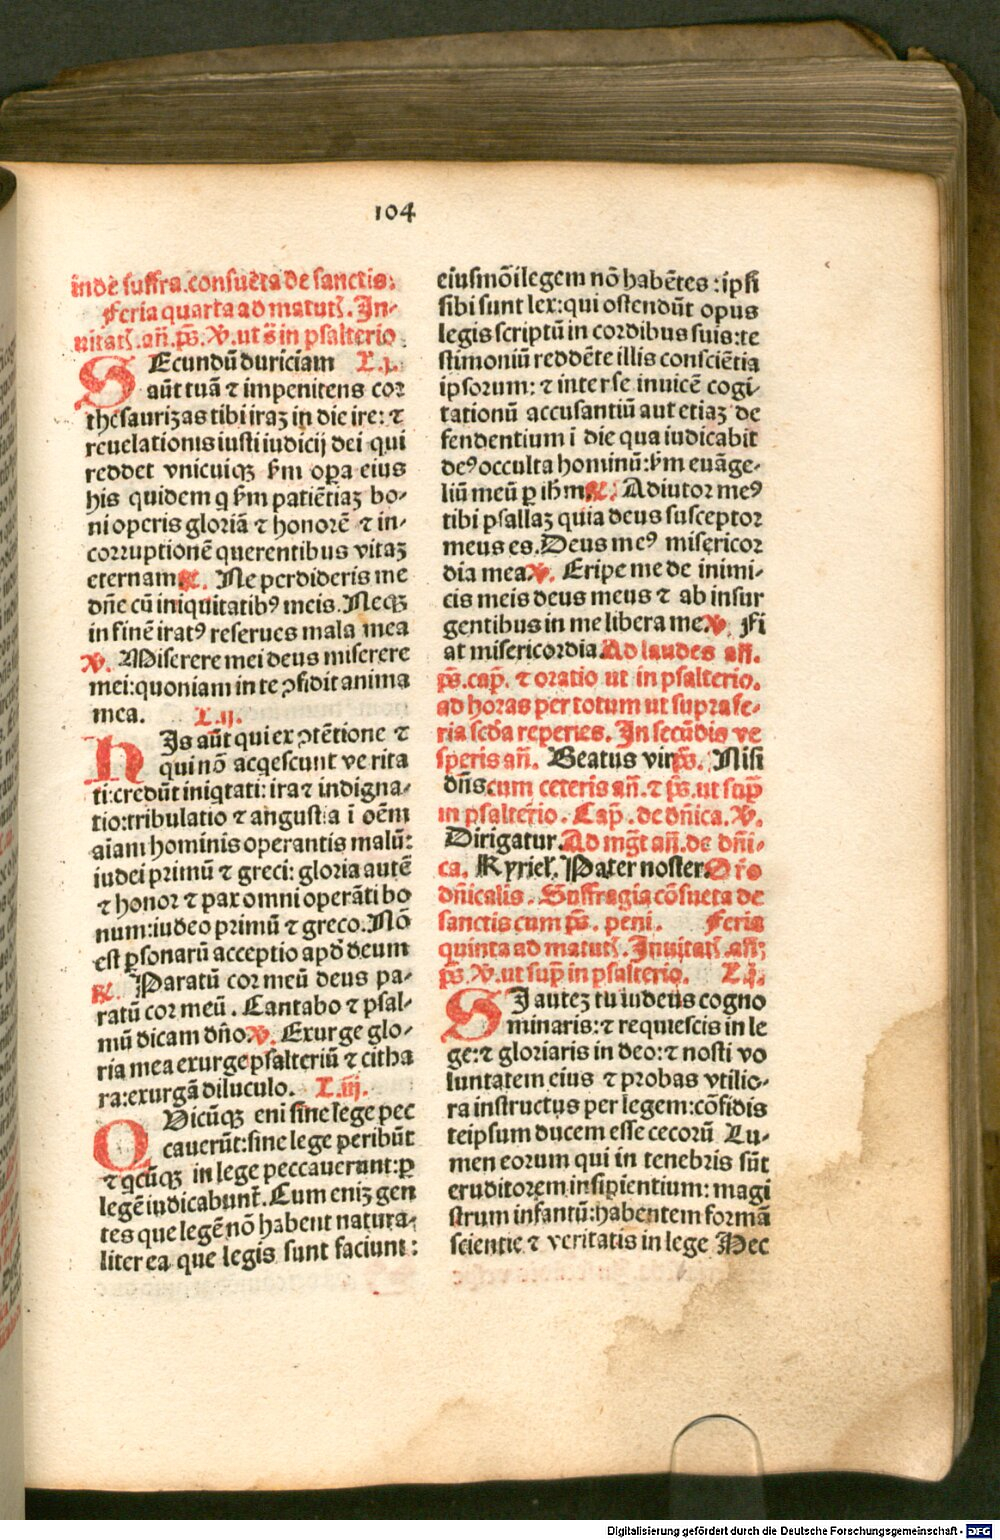 104
inde suffra.consueta de sanctis:
Feria quarta ad matutꝭ. In-
uitatꝭ. añ. p̄s. ℣. ut s̄ in psalterio.
SEcundū duriciam L.j.
aūt tuā ⁊ impenitens cor
thesaurizas tibi iraꝫ in die ire: ⁊
reuelationis iusti iudicij dei qui
reddet vnicuiqꝫ ẜm oꝑa eius
his quidem q ẜm patiētiaꝫ bo-
ni operis gloriā ⁊ honorē ⁊ in-
corruptionē querentibus vitaꝫ
eternam ℟. Ne perdideris me
dn̄e cū iniquitatibꝰ meis. Neqꝫ
in finē iratꝰ reserues mala mea
℣. Miserere mei deus miserere
mei:quoniam in te ꝯfidit anima
mea. L.ij.
HIs aūt qui ex ꝯtētione ⁊
qui nō acqescunt verita
ti:credūt iniqtati: ira ⁊ indigna-
tio:tribulatio ⁊ angustia ī oēm
aīam hominis operantis malū:
iudei primū ⁊ greci: gloria autē
⁊ honor ⁊ pax omni operāti bo
num:iudeo primū ⁊ greco. Nō
est ꝑsonarū acceptio apd̄ deum
℟. Paratū cor meū deus pa-
ratū cor meū. Cantabo ⁊ psal-
mū dicam dn̄o ℣. Exurge glo-
ria mea exurge psalteriū ⁊ citha
ra:exurgā diluculo. L.iij.
QUicūqꝫ eni sine lege pec
cauerūt:sine lege peribūt
⁊ qcūqꝫ in lege peccauerunt:ꝑ
legē iudicabunt. Cum eniꝫ gen
tes que legē nō habent natura-
liter ea que legis sunt faciunt:
eiusmōi legem nō habētes: ipsi
sibi sunt lex:qui ostendūt opus
legis scriptū in cordibus suis:te
stimoniū reddēte illis consciētia
ipsorum: ⁊ inter se inuicē cogi-
tationū accusantiū aut etiaꝫ de
fendentium ī die qua iudicabit
deꝰ occulta hominū:ẜm euāge-
liū meū ꝑ ihm̄ ℟. Adiutor meꝰ
tibi psallaꝫ quia deus susceptor
meus es. Deus meꝰ misericor
dia mea ℣. Eripe me de inimi-
cis meis deus meus ⁊ ab insur
gentibus in me libera me ℣. Fi
at misericordia. Ad laudes añ.
p̄s. cap̄. ⁊ oratio ut in psalterio.
ad horas per totum ut supra fe-
ria scd̄a reperies. In secūdis ve
speris añ. Beatus vir p̄s. Nisi
dn̄s. cum ceteris añ. ⁊ p̄s. ut sup̄
in psalterio. Cap̄. de dn̄ica. ℣.
Dirigatur. Ad mg̃t añ. de dn̄i-
ca. Kyrieł. Pater noster. Or̄o
dn̄icalis. Suffragia cōsueta de
sanctis cum p̄s. peni. Feria
quinta ad matutꝭ. Inuitatꝭ. añ;
p̄s. ℣. ut sup̄ in psalterio. L.j.
SI autez tu iudeus cogno
minaris:⁊ requiescis in le
ge:⁊ gloriaris in deo:⁊ nosti vo
luntatem eius ⁊ probas vtilio-
ra instructus per legem:cōfidis
teipsum ducem esse cecorū Lu-
men eorum qui in tenebris sūt
eruditorem insipientium: magi
strum infantū:habentem formā
scientie ⁊ veritatis in lege Nec
Digitalisierung gefördert durch die Deutsche Forschungsgemeinschaft - DFG